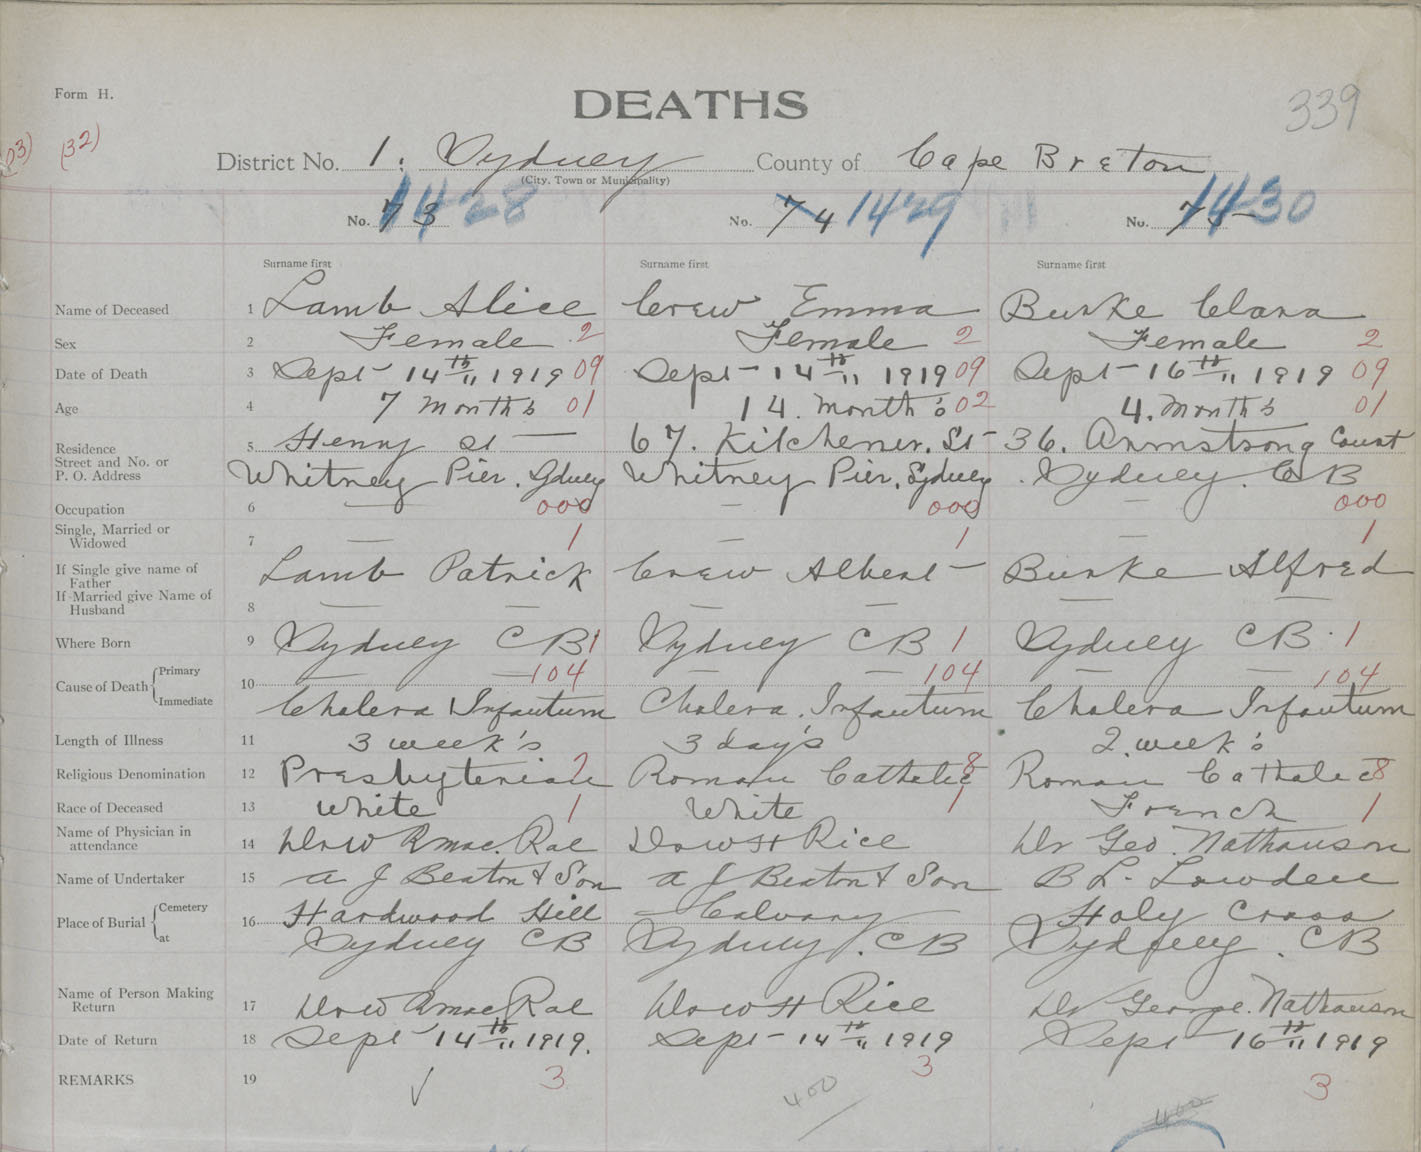 Form H.
DEATHS
339
23) (32)
District No. 1. Sydney County of Cape Breton
(City, Town or Municipality)
No. 73 1428 No. 74 1429 No. 75 1430
Surname first Surname first Surname first
Name of Deceased 1 Lamb Alice Crew Emma Burke Clara
Sex 2 Female 2 Female 2 Female 2
Date of Death 3 Sept 14th 1919 09 Sept 14th 1919 09 Sept 16th 1919 09
Age 4 7 Month's 01 14. Month's 02 4. Month's 01
Residence 5 Henry St 67. Kitchener. St 36. Armstrong Court
Street and No. or
P. O. Address Whitney Pier. Sydney Whitney Pier. Sydney Sydney. C B
Occupation 6 — 000 — 000 — 000
Single, Married or
Widowed 7 — 1 — 1 — 1
If Single give name of
Father Lamb Patrick Crew Albert Burke Alfred
If Married give Name of
Husband 8 — — — — — —
Where Born 9 Sydney C B 1 Sydney C B 1 Sydney C B. 1
Cause of Death Primary 10 — — 104 — — 104 — — 104
Immediate Cholera Infantum Cholera. Infantum Cholera Infantum
Length of Illness 11 3 week's 3 day's 2. week's
Religious Denomination 12 Presbyterian 2 Roman Catholic 8 Roman Catholic 8
Race of Deceased 13 White 1 White 1 French 1
Name of Physician in
attendance 14 Dr W R Mac. Rae Dr W H Rice Dr Geo. Nathanson
Name of Undertaker 15 A J Beaton & Son A J Beaton & Son B L. Lowden
Place of Burial Cemetery 16 Hardwood Hill Calvary Holy Cross
at Sydney C B Sydney. C B Sydney. C B
Name of Person Making
Return 17 Dr W R Mac Rae Dr W H Rice Dr George. Nathanson
Date of Return 18 Sept 14th 1919. Sept 14th 1919 Sept 16th 1919
REMARKS 19 ✓ 3 400 3 400 3